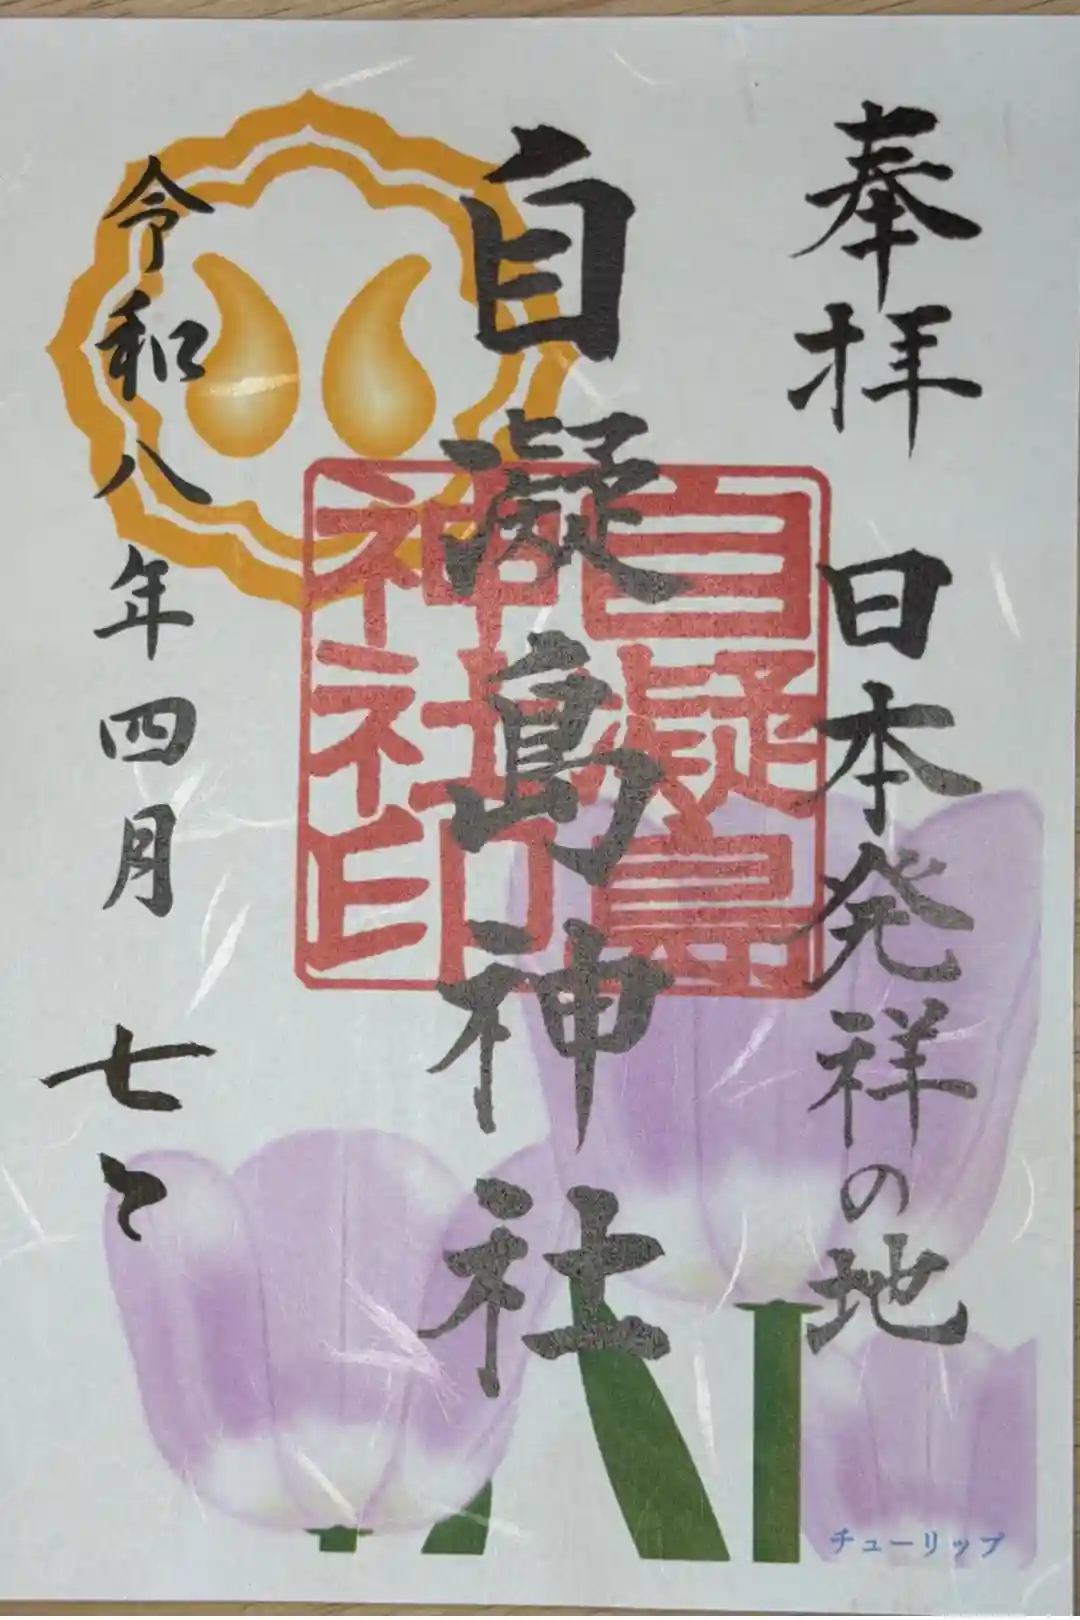 奉拝 日本発祥の地
自凝島神社
自凝島
神社印
令和八年四月 七日
チューリップ